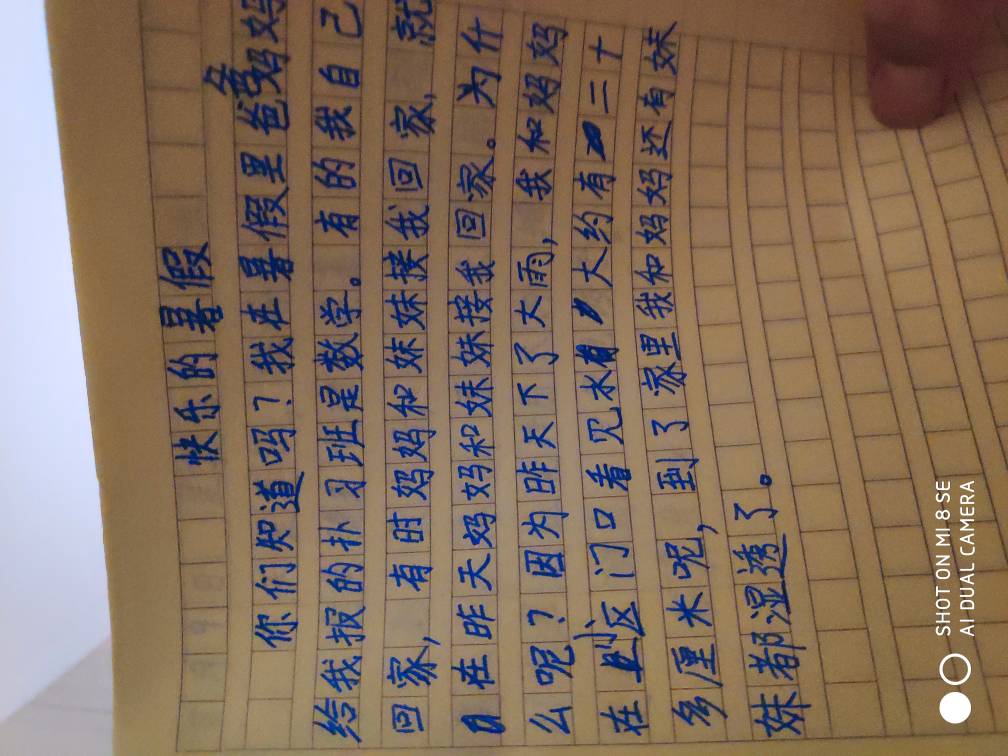 快乐的暑假
你们知道吗？我在暑假里爸爸妈妈
给我报的扑习班是数学。有的我自己
回家，有时妈妈和妹妹接我回家，就
在昨天妈妈和妹妹接我回家。为什
么呢？因为昨天下了大雨，我和妈妈
在小区门口看见水大约有二十
多厘米呢，到了家里我和妈妈还有妹
妹都湿透了。
SHOT ON MI 8 SE
AI DUAL CAMERA